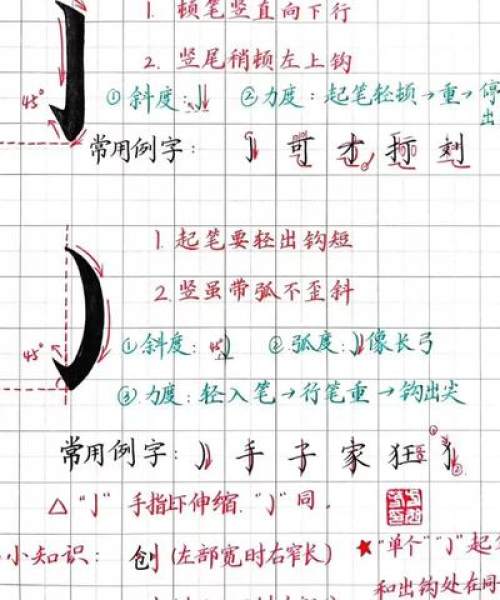 1. 顿笔竖直向下行
2. 竖尾稍顿左上钩
45° ①斜度:亅 ②力度:起笔轻顿→重→停
出
常用例字: 亅 可 才 打 刘
1. 起笔要轻出钩短
2. 竖虽带弧不歪斜
45° ①斜度: 45° ②弧度: 像长弓
③力度:轻入笔→行笔重→钩出尖
常用例字: 手 子 家 狂 犭
△“亅”手指上下伸缩.“亅”同.
小知识: 创(左部宽时右窄长) ★“单个”“亅”起
和出钩处在同